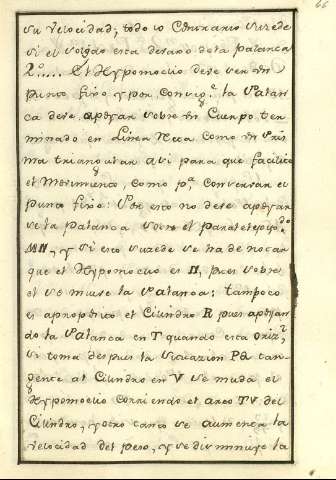 66
su velocidad; todo lo contrario sucede
si el sosten esta devajo de la palanca
2º..... El Hypomoclio deve ser un
punto fixo y por conseg.e la Palan
ca deve apoyar sobre un cuerpo ter
minado en Linea Reta como un Pris
ma triangular asi para que facilite
el Movimiento, como p.a conservar el
punto fixo: Por eso no deve apoyar
se la palanca sobre el paralelepiped.o
MN, y si esto sucede se ha de notar
que el Hypomoclio es N, pues sobre
el se mueve la Palanca; tampoco
es aproposito el Cilindro R pues apoyan
do la Palanca en T quando esta orizl
si toma despues la Situazion PQ tan
gente al Cilindro en V se muda el
Hypomoclio corriendo el arco TV del
Cilindro, y otro tanto se aumenta la
velocidad del peso, y se disminuye la